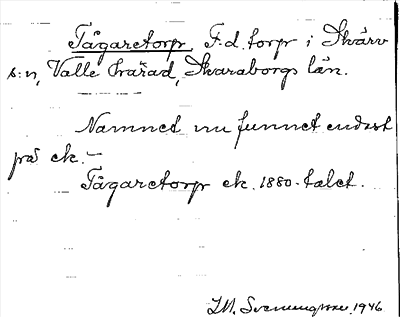 Tågaretorp, F.d. torp i Skärv
s:n, Valle härad, Skaraborgs län.
Namnet nu funnet endast
på ek. –
Tågaretorp ek. 1880-talet.
I.M. Svenungsson 1946